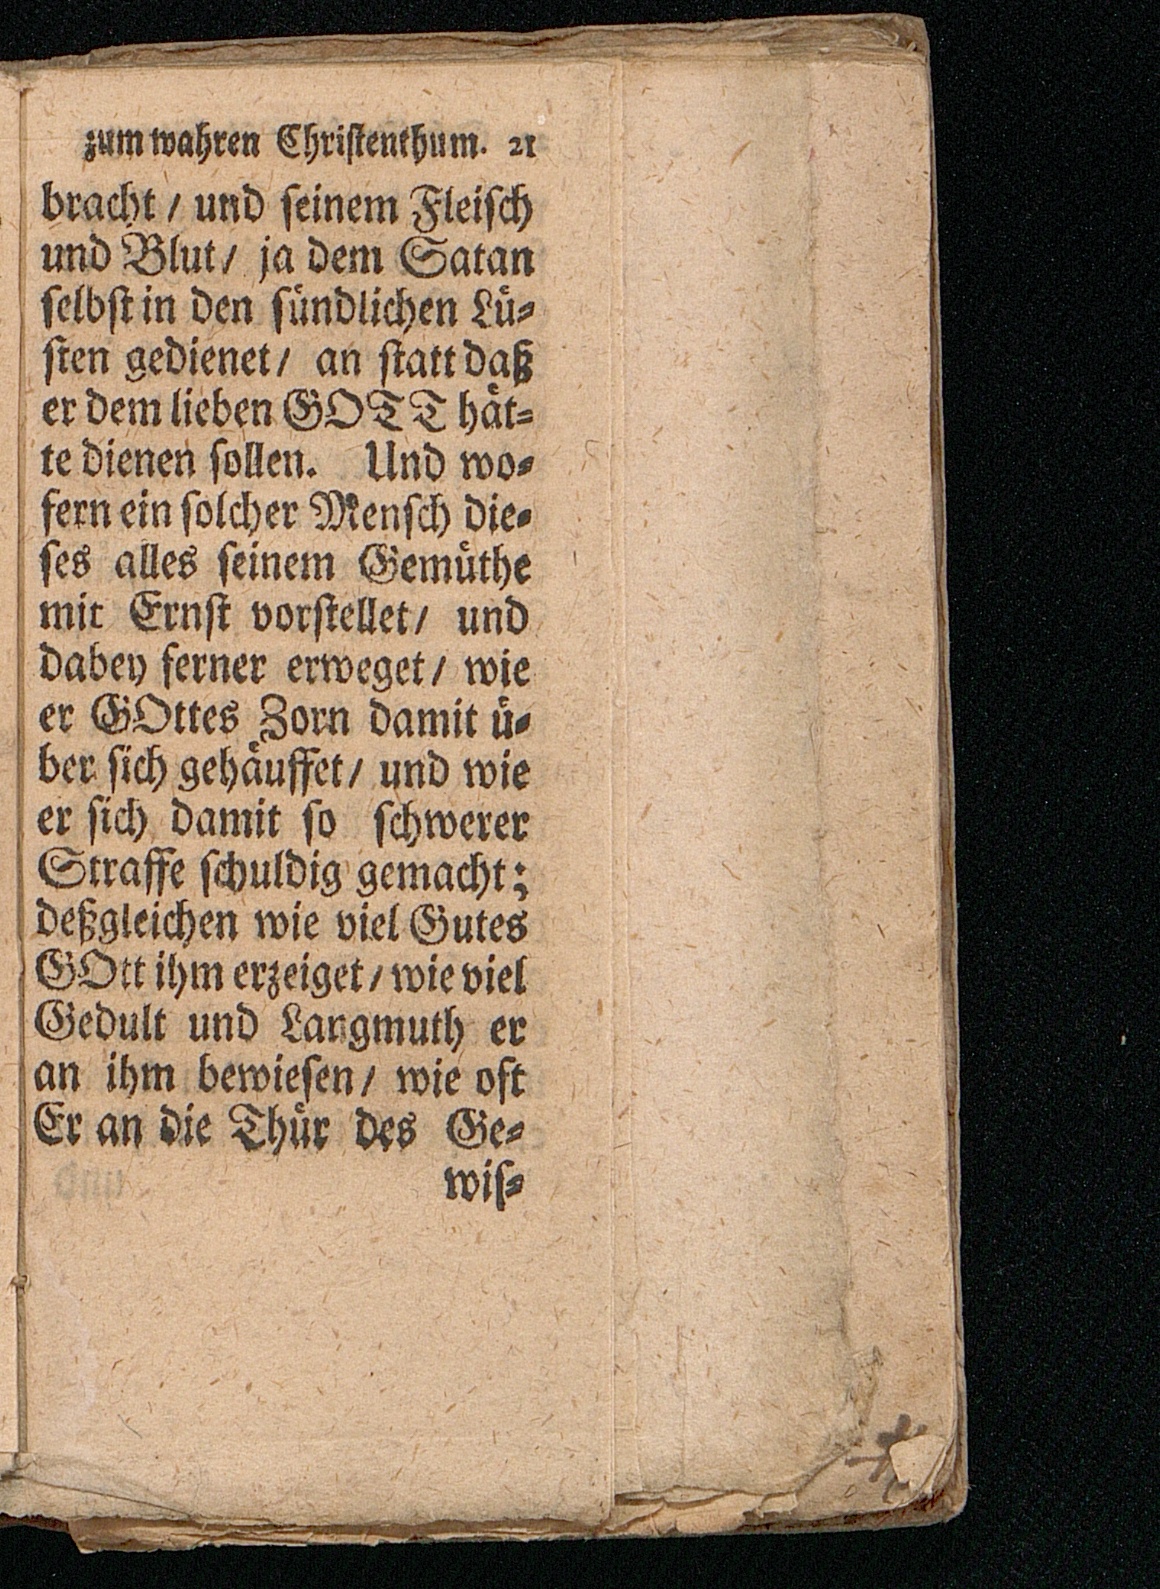 zum wahren Christenthum. 21
bracht / und seinem Fleisch
und Blut / ja dem Satan
selbst in den sündlichen Lü-
sten gedienet / an statt daß
er dem lieben GOTT hät-
te dienen sollen. Und wo-
fern ein solcher Mensch die-
ses alles seinem Gemüthe
mit Ernst vorstellet / und
dabey ferner erweget / wie
er GOttes Zorn damit ü-
ber sich gehäuffet / und wie
er sich damit so schwerer
Straffe schuldig gemacht;
deßgleichen wie viel Gutes
GOtt ihm erzeiget / wie viel
Gedult und Langmuth er
an ihm bewiesen / wie oft
Er an die Thür des Ge-
wis-